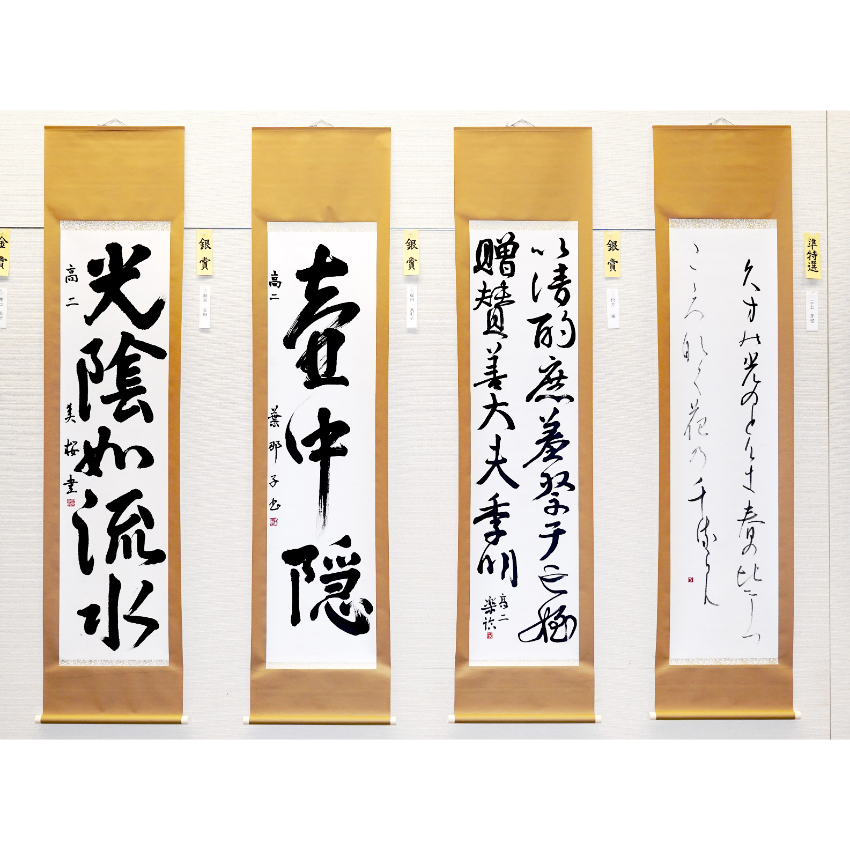 準特選
久方の光のとけき春の比に
しつこゝろなく花の千るらん
銀賞
以清酌庶羞祭于亡姪
贈賛善大夫季明
高二
銀賞
壷中隠
高二 葉那子書
銀賞
光陰如流水
高二 美桜書
金賞